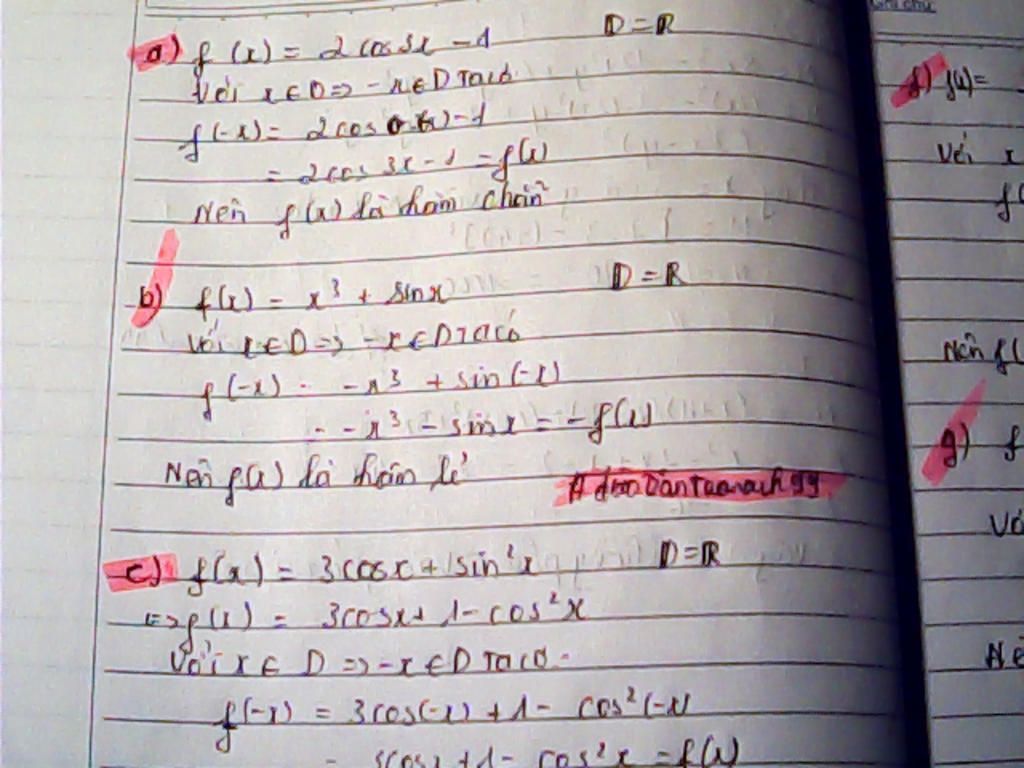 a) f(x) = 2cos3x - 1 D = ℝ
Với x ∈ D => -x ∈ D Ta có
f(-x) = 2cos -1
= 2cos 3x - 1 = f(x)
Nên f(x) là hàm chẵn
b) f(x) = x³ + sinx D = ℝ
Với x ∈ D => -x ∈ D Ta có
f(-x) = -x³ + sin(-x)
= -x³ - sinx = -f(x)
Nên f(x) là hàm lẻ
c) f(x) = 3cosx + sin²x D = ℝ
<=> f(x) = 3cosx + 1 - cos²x
Với x ∈ D => -x ∈ D Ta có
f(-x) = 3cos(-x) + 1 - cos²(-x)
= 3cosx + 1 - cos²x = f(x)
f) f(x) =
Với x
f(
Nên f(
g) f